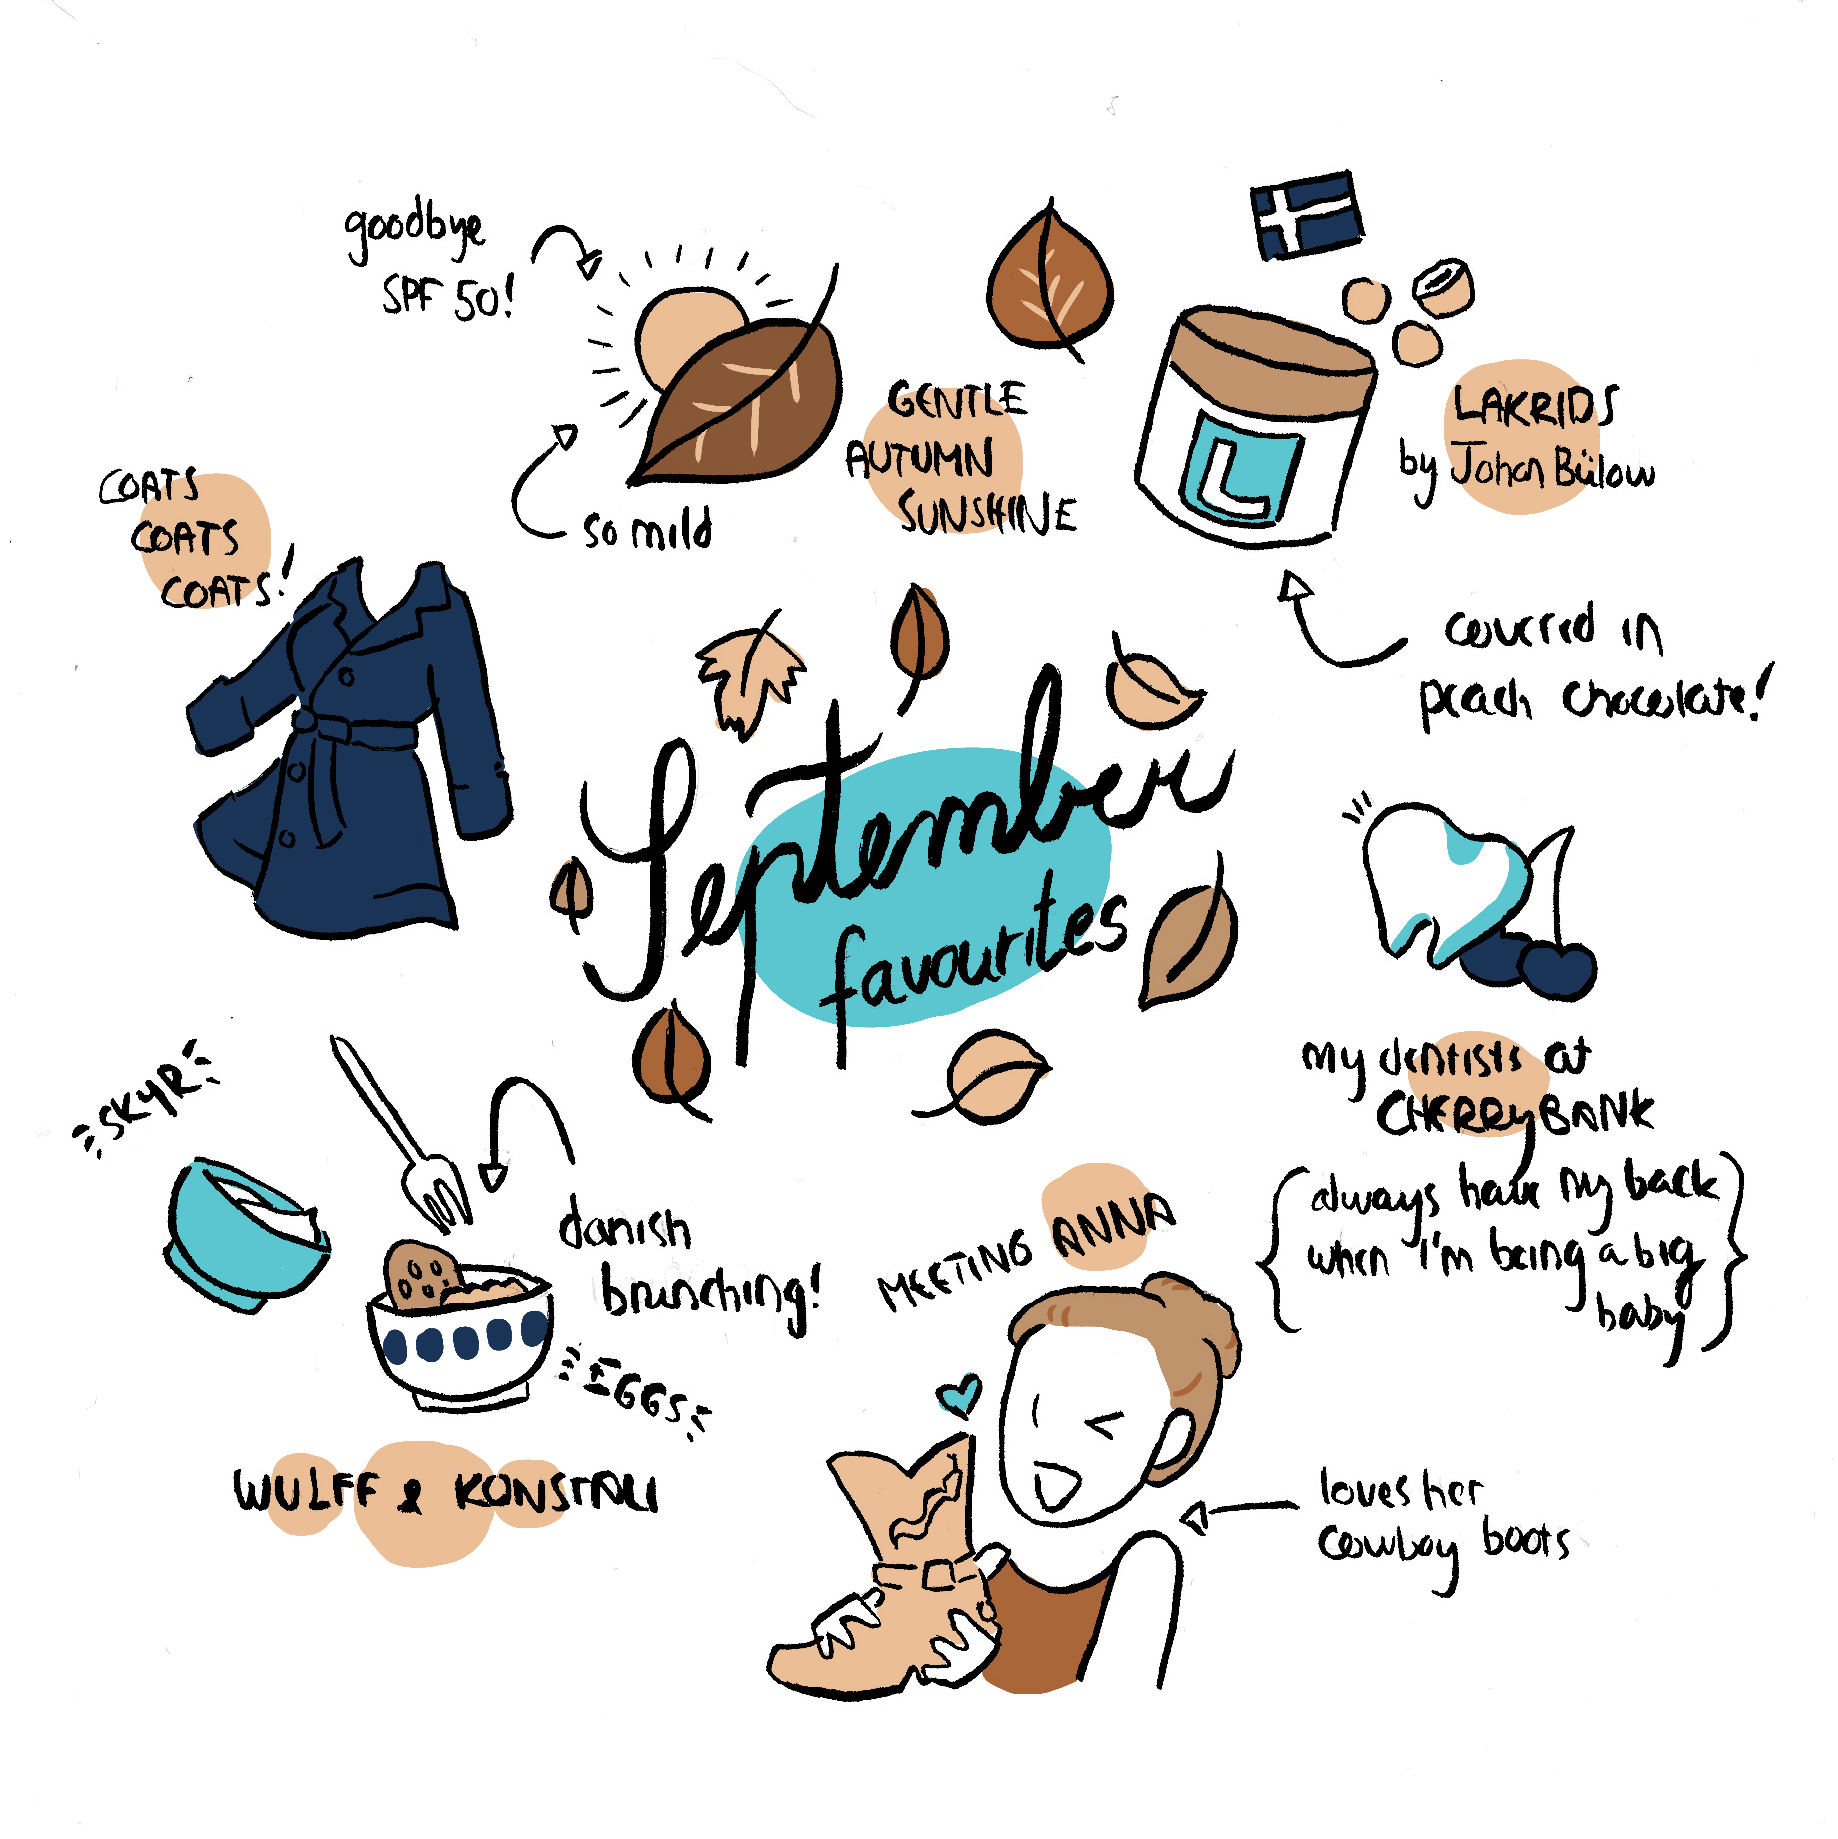 goodbye
SPF 50!
so mild
GENTLE
AUTUMN
SUNSHINE
L
LAKRIDS
by Johan Bülow
covered in
peach chocolate!
COATS
COATS
COATS!
September
favourites
my dentists at
CHERRYBANK
{always have my back
when I'm being a big
baby}
SKYR
danish
brunching!
EGGS
WULFF & KONSTALI
MEETING ANNA
loves her
cowboy boots